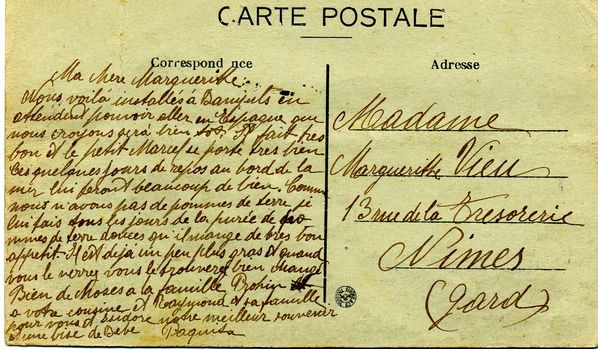 CARTE POSTALE
Correspond nce
Ma chère Marguerithe
Nous voilà installés à Banyuls en
attendent pouvoir aller en Espagne que
nous croyons sera bien tot. Il fait tres
bon et le petit Marcel se porte tres bien
Ces quelques jours de repos au bord de la
mer lui feront beaucoup de bien. Comme
nous n'avons pas de pommes de terre je
lui fais tous les jours de la purée de po
mmes de terre douces qu'il mange de tres bon
appetit. Il est déjà un peu plus gras et quand
vous le verrez vous le trouverez bien changé
Bien de choses a la famille
a votre cousine et Raymond et sa famille
pour vous et Isidore notre meilleur souvenir
et une bise de Bébé Paquita
Adresse
Madame
Marguerithe Vieu
13 rue de la Tresorerie
Nimes
(Gard)